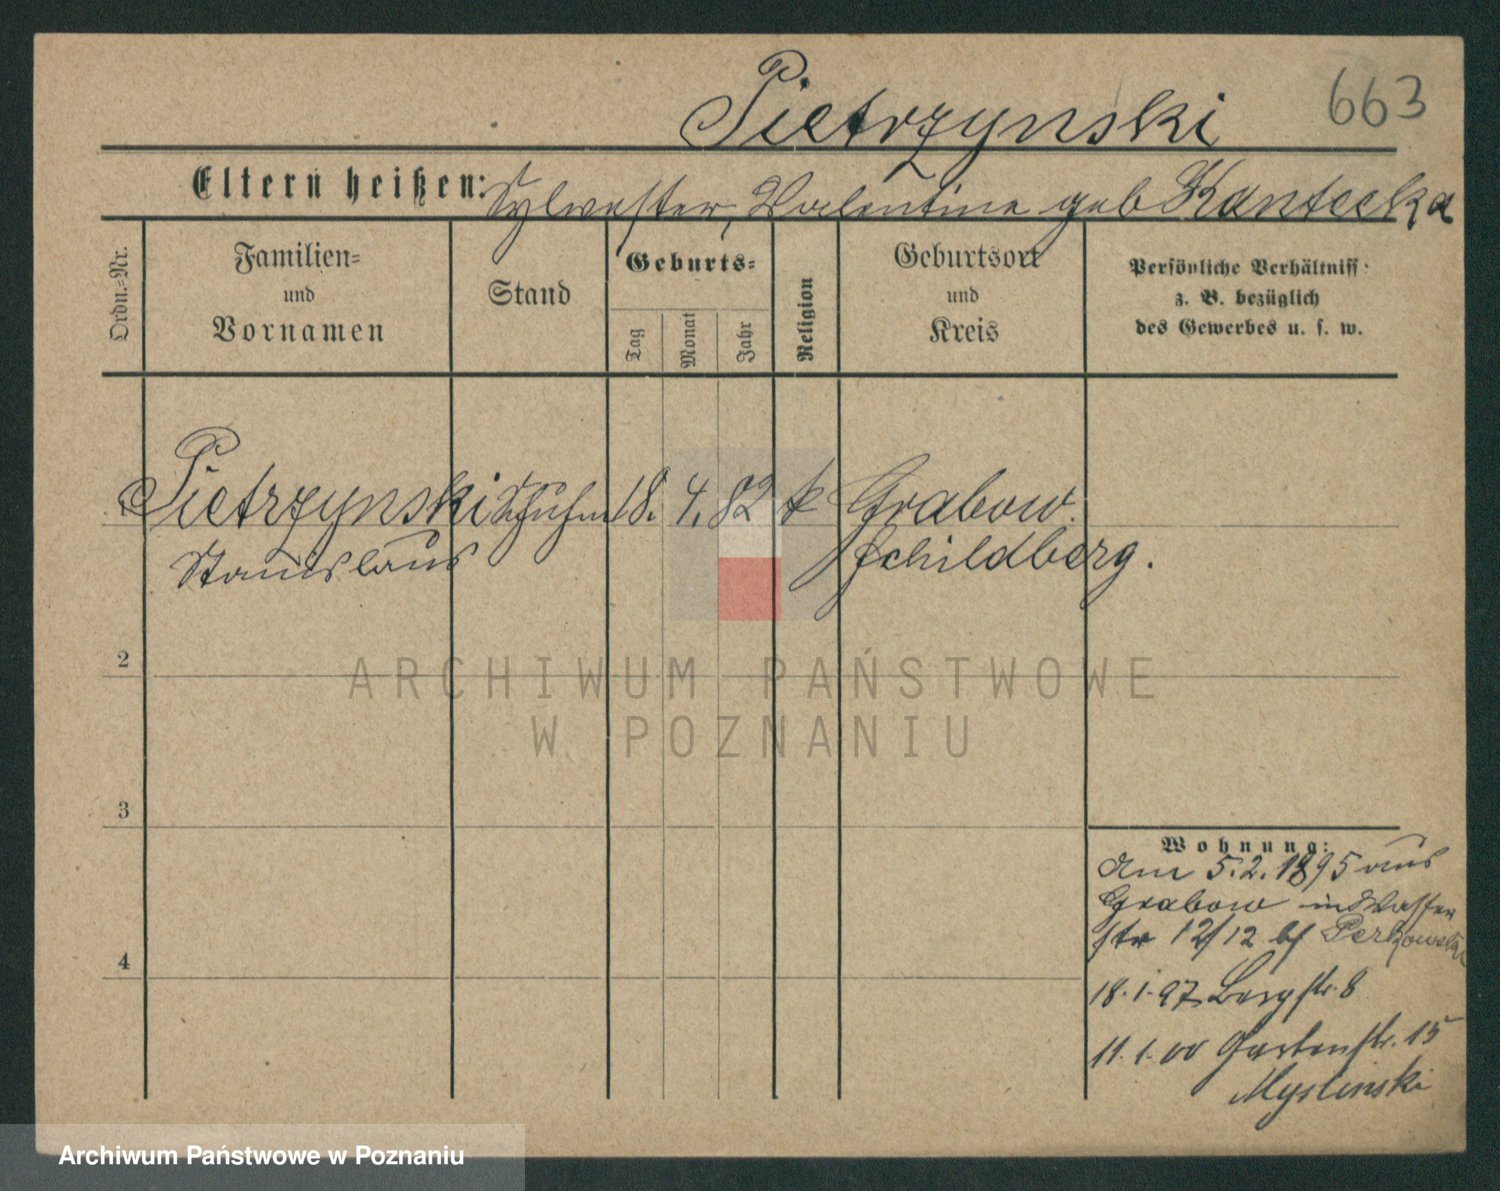 663
Pietrzynski
Eltern heißen: Sylwester, Valentine geb Kantecka
Ordn.=Nr.
Familien=
und
Vornamen
Stand
Geburts=
Tag
Monat
Jahr
Religion
Geburtsort
und
Kreis
Persönliche Verhältniss
z. B. bezüglich
des Gewerbes u. s. w.
Pietrzynski Schuhm 18. 4. 82 k Grabow
Stanislaus Schildberg.
2
3
4
Wohnung:
Am 5.2.1895 aus
Grabow in Wasser
str 12/12 bei Perkowski
18.1.97 Bergstr. 8
11.1.00 Gartenstr. 15
Myslinski
ARCHIWUM PAŃSTWOWE
W POZNANIU
Archiwum Państwowe w Poznaniu